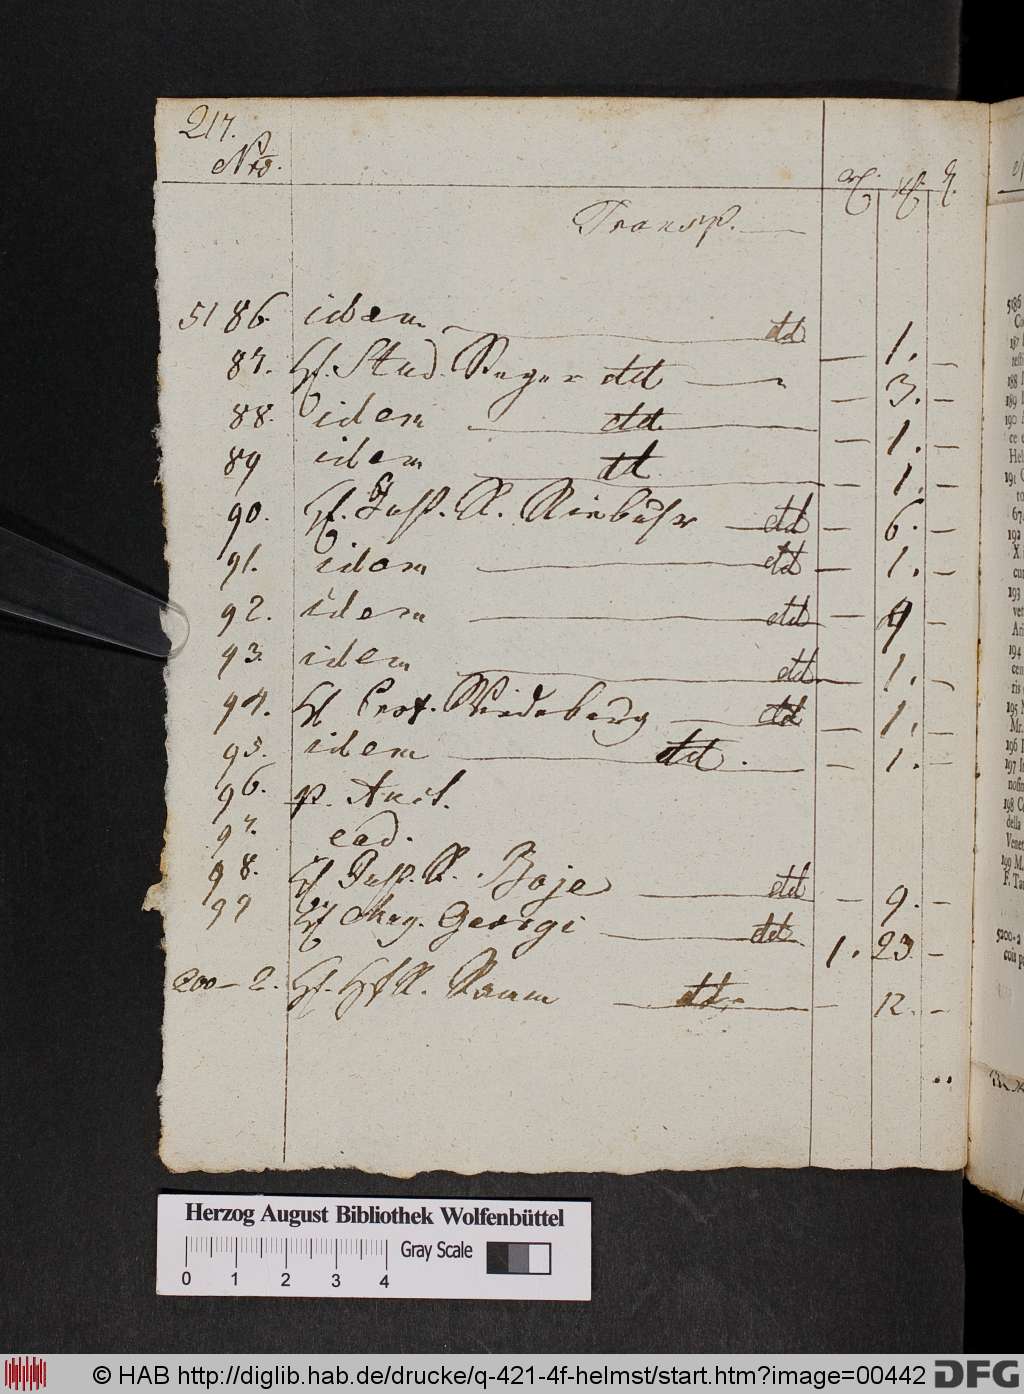 217.
Nro.
Transp.
5186. idem dd — 1. —
87. H. Stud. Seger dd — 3. —
88. idem dd — 1. —
89 idem dd — 1. —
90. H. Insp. R. Niebuhr dd — 6. —
91. idem dd — 1. —
92. idem dd — —
93. idem dd — 1. —
94. H Prof. Wideburg dd — 1. —
95. idem dd. — 1. —
96. p. Auct.
97. ead.
98. H Insp. R. Boje dd — 9. —
99 H Mag. Georgi dd 1. 23. —
200-2. H. dd — 12. —
Herzog August Bibliothek Wolfenbüttel
Gray Scale
0 1 2 3 4
© HAB http://diglib.hab.de/drucke/q-421-4f-helmst/start.htm?image=00442
DFG